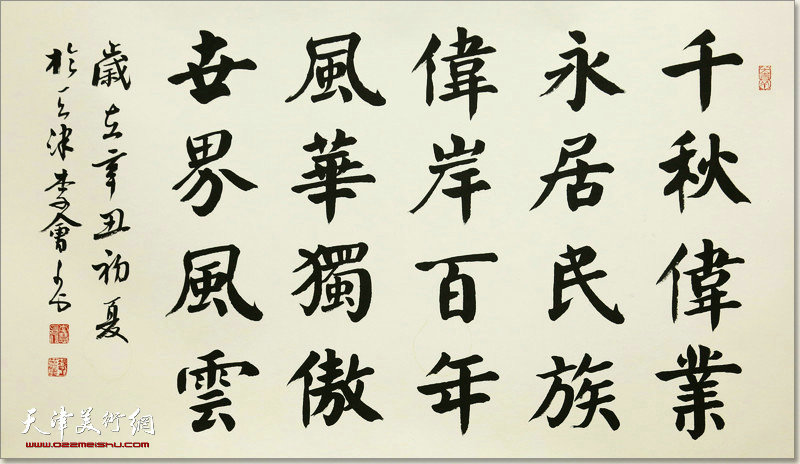 千秋偉業
永居民族
偉岸百年
風華獨傲
世界風雲
歲在辛丑初夏
於天津李會
天津美術網
www.022meishu.com